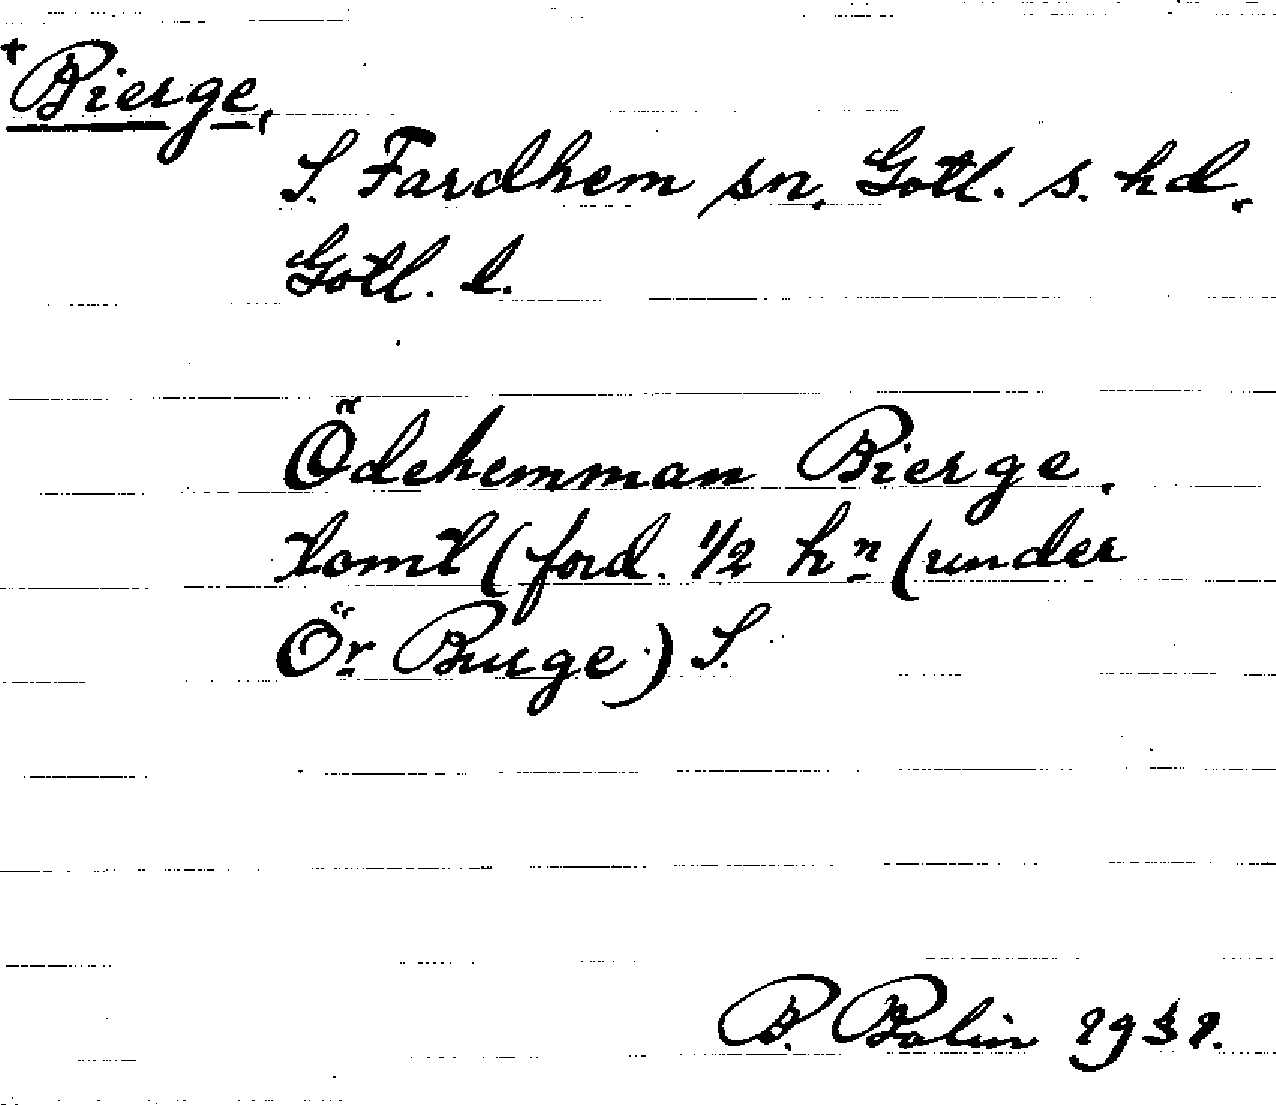 +Bierge,
S. Fardhem sn. Gotl. s. hd.
Gotl. l.
Ödehemman Bierge.
tomt (ford. 1/2 hn (under
Ör Burge) S.
B. Bolin 1931.